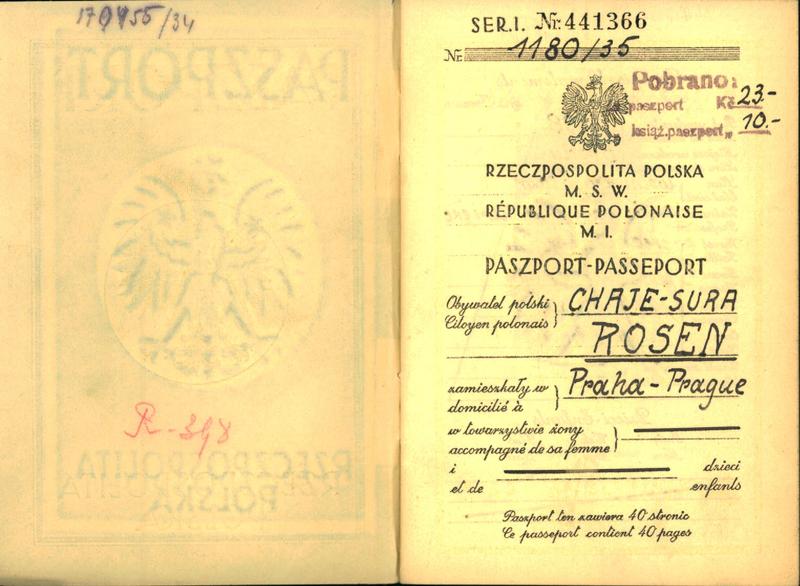 170455/34
R-398
SER.I. Nr 441366
Nr 1180/35
Pobrano:
paszport Kč 23.-
książ.paszport „ 10.-
RZECZPOSPOLITA POLSKA
M. S. W.
RÉPUBLIQUE POLONAISE
M. I.
PASZPORT-PASSEPORT
Obywatel polski } CHAJE-SURA
Citoyen polonais
ROSEN
zamieszkały w } Praha-Prague
domicilié à
w towarzystwie żony }
accompagné de sa femme
i dzieci
et de enfants
Paszport ten zawiera 40 stronic
Ce passeport contient 40 pages